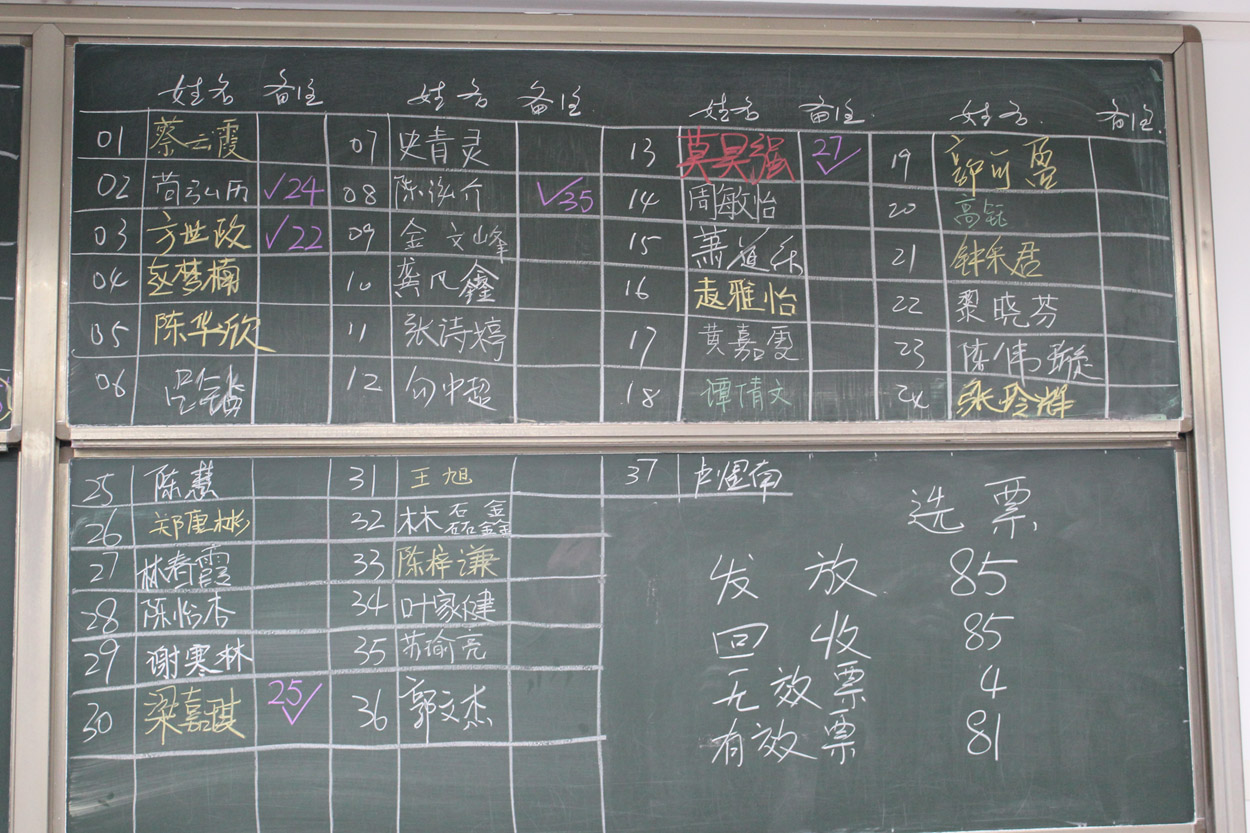 姓名 备注 姓名 备注 姓名 备注 姓名 备注
01 蔡云霞 07 史青灵 13 莫昊强 27√ 19
02 √24 08 陈泓介 √35 14 周敏怡 20 高钰
03 方世政 √22 09 金文峰 15 萧道乐 21 钟采君
04 赵梦楠 10 龚凡鑫 16 袁雅怡 22 黎晓芬
05 陈华欣 11 张诗婷 17 黄嘉雯 23 陈伟璇
06 12 勾中超 18 谭倩文 24 张玲辉
25 陈慧 31 王旭 37 卢煜南
26 郑唐彬 32 林磊鑫
27 林春霞 33 陈梓谦
28 陈怡杏 34 叶家健
29 谢寒林 35 苏瑜亮
30 梁嘉琪 25√ 36 郭文杰
选票
发放 85
回收 85
无效票 4
有效票 81